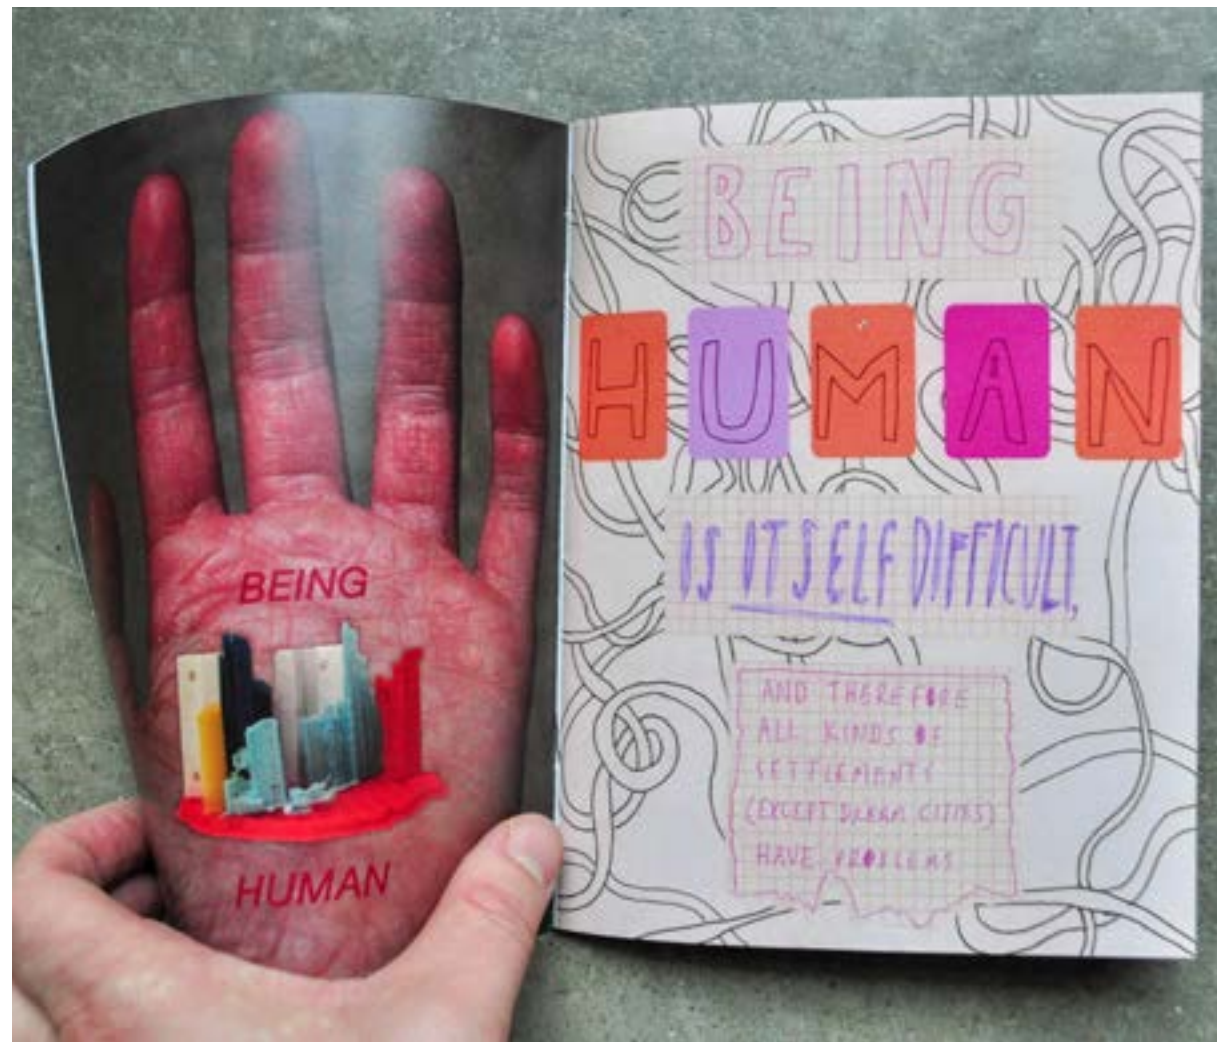 BEING
HUMAN
BEING
HUMAN
IS ITSELF DIFFICULT,
AND THEREFORE
ALL KINDS OF
SETTLEMENTS
(EXCEPT DREAM CITIES)
HAVE PROBLEMS